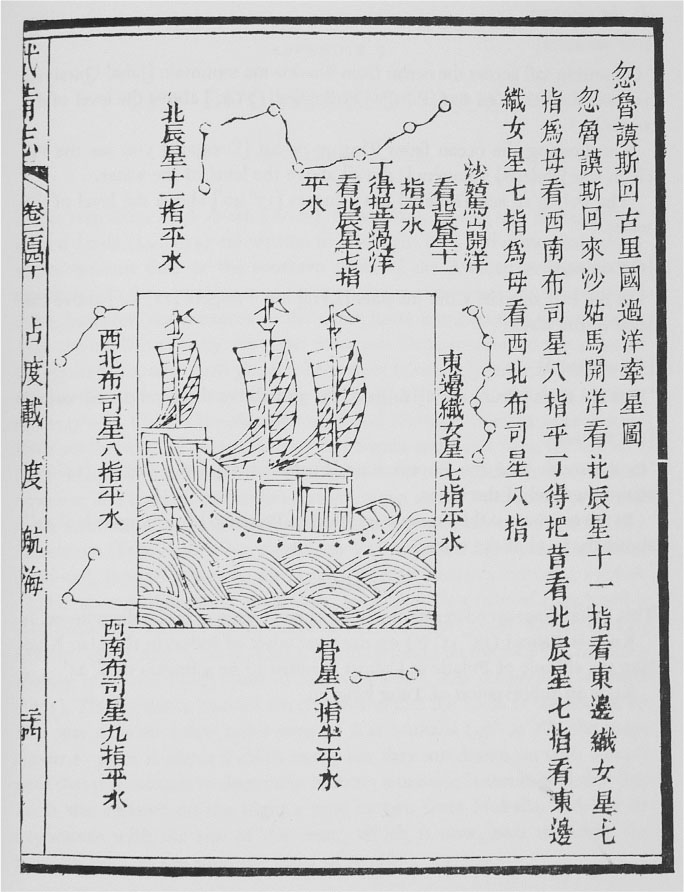 忽魯謨斯回古里國過洋牽星圖
忽魯謨斯回來沙姑馬開洋看北辰星十一指看東邊織女星七
指爲母看西南布司星八指平丁得把昔看北辰星七指看東邊
織女星七指爲母看西北布司星八指
沙姑馬山開洋
看北辰星十一
指平水
丁得把昔過洋
看北辰星七指
平水
北辰星十一指平水
東邊織女星七指平水
骨星八指半平水
西北布司星八指平水
西南布司星九指平水
武備志 卷二百四十 占度載 度 航海